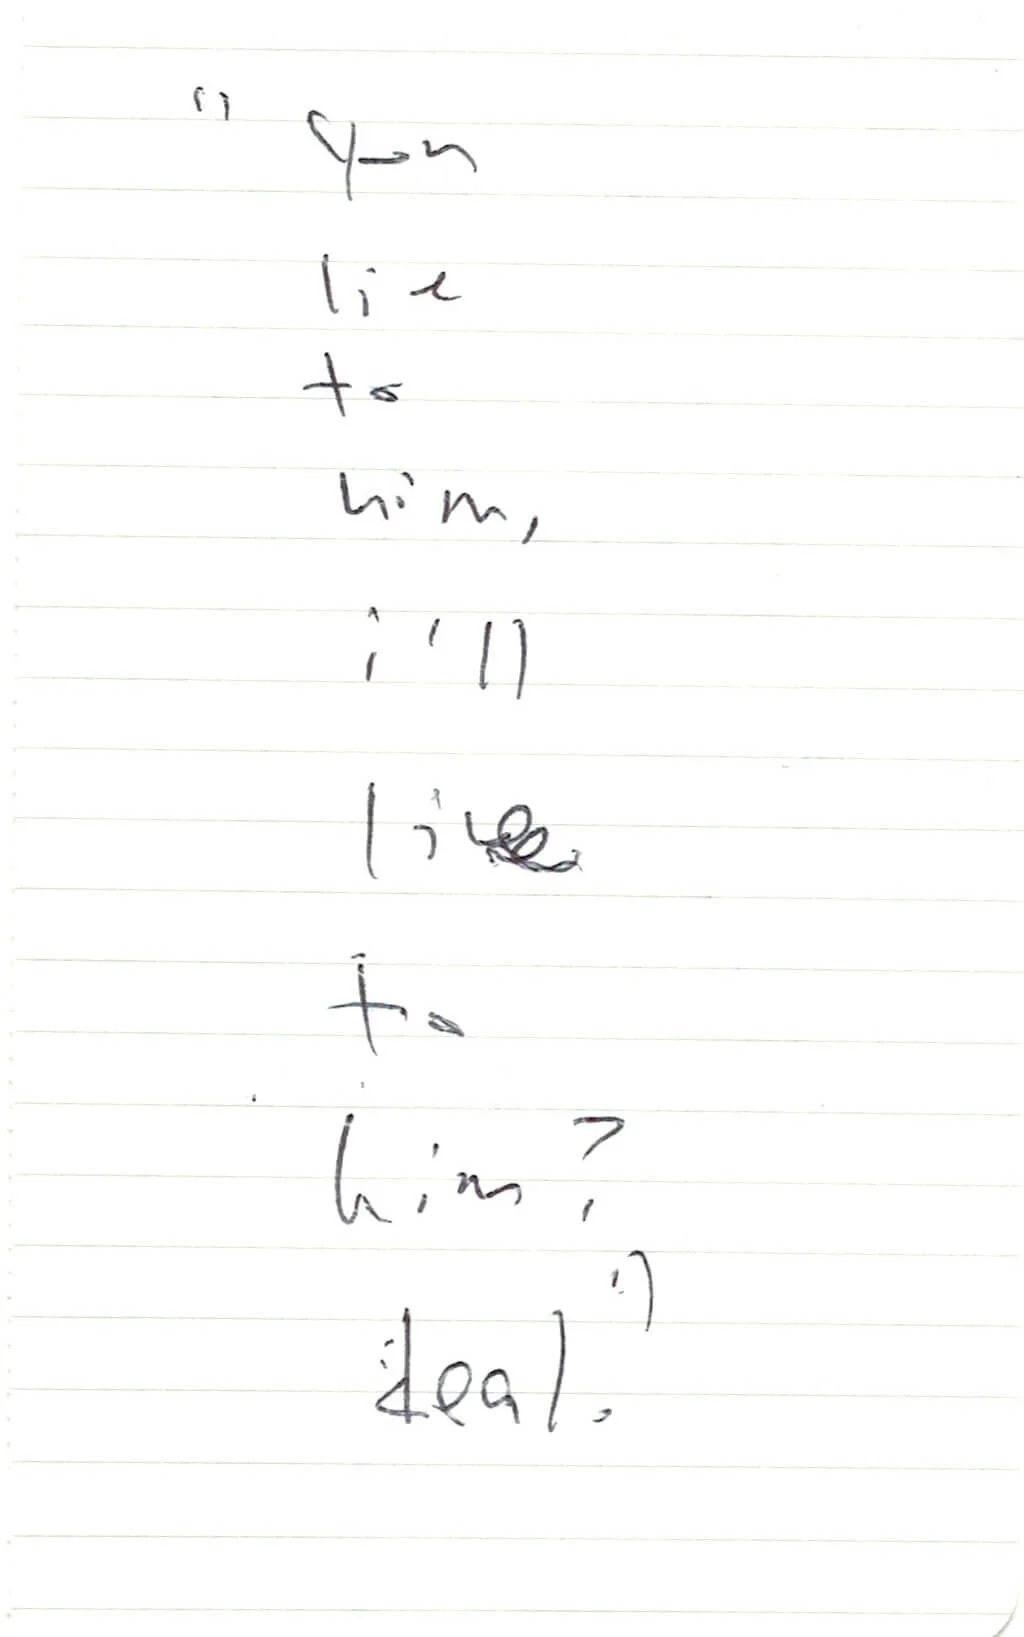 " you
lie
to
him,
i'll
lie
to
him?
deal."